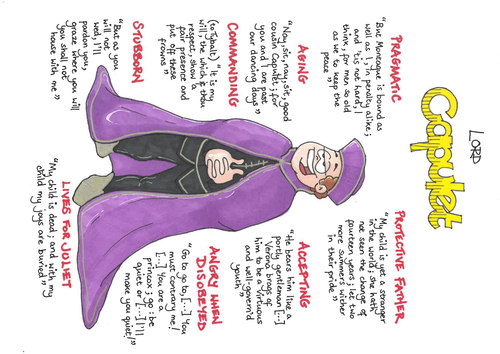 LORD
Capulet
PRAGMATIC
"But Montague is bound as
well as I, in penalty alike;
and 'tis not hard, I
think, for men so old
as we to keep the
peace"
AGING
"Nay, sit, nay, sit, good
cousin Capulet; for
you and I are past
our dancing days"
COMMANDING
(to Tybalt) "It is my
will; the which if thou
respect, show a
fair presence and
put off these
frowns"
STUBBORN
"But as you
will not
wed, I'll
pardon you;
graze where you will
you shall not
house with me"
PROTECTIVE FATHER
"My child is yet a stranger
in the world; she hath
not seen the change of
fourteen years; let two
more summers wither
in their pride"
ACCEPTING
"He bears him like a
portly gentleman [...]
Verona brags of
him to be a virtuous
and well-govern'd
youth"
ANGRY WHEN
DISOBEYED
"Go to, go to, [...] You
must contrary me!
[...] You are a
princox; go: be
quiet or [...] I'll
make you quiet!"
LIVES FOR JULIET
"My child is dead; and with my
child my joys are buried"